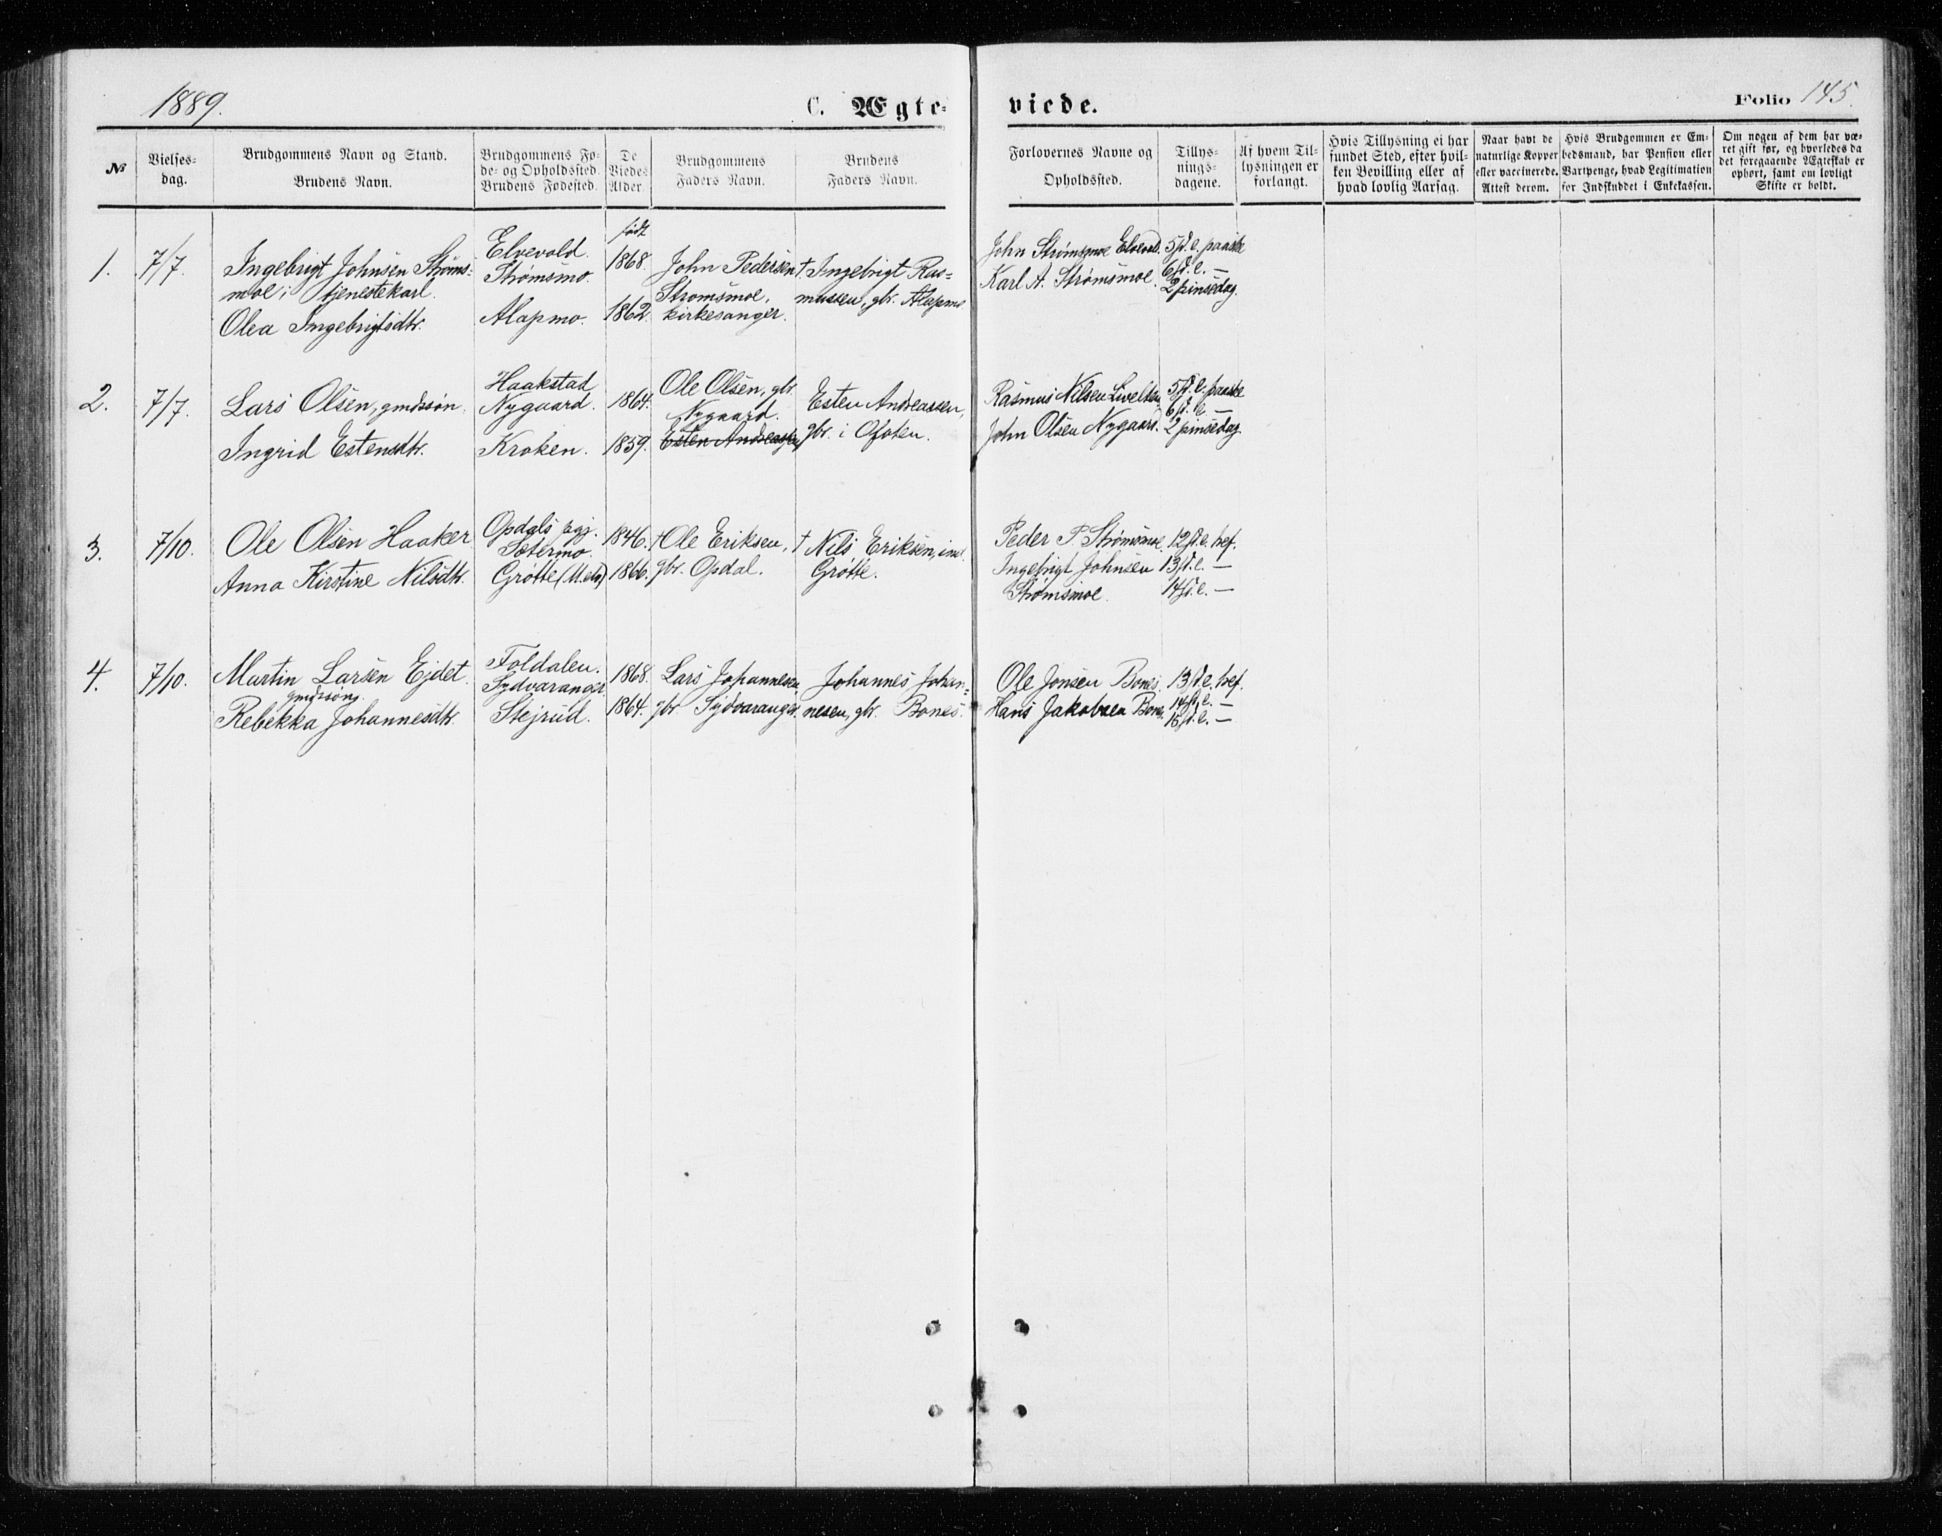 1889.
C. Ægte-
viede.
Folio 145.
№
Vielses-
dag.
Brudgommens Navn og Stand.
Brudens Navn.
Brudgommens Fø-
de- og Opholdssted.
Brudens Fødested.
De
Viedes
Alder.
Brudgommens
Faders Navn.
Brudens
Faders Navn.
Forlovernes Navne og
Opholdssted.
Tillys-
nings-
dagene.
Af hvem Til-
lysningen er
forlangt.
Hvis Tillysning ei har
fundet Sted, efter hvil-
ken Bevilling eller af
hvad lovlig Aarsag.
Naar havt de
naturlige Kopper
eller vaccinerede.
Attest derom.
Hvis Brudgommen er Em-
bedsmand, har Pension eller
Vartpenge, hvad Legitimation
for Indskuddet i Enkekassen.
Om nogen af dem har væ-
ret gift før, og hvorledes da
det foregaaende Ægteskab er
ophørt, samt om lovligt
Skifte er holdt.
1.
7/7.
Ingebrigt Johnsen Strøms-
moe, tjenestekarl.
Olea Ingebrigtsdtr.
Elvevold.
Strømsmo.
Alapmo.
født
1868.
1862.
John Pedersen
Strømsmoe,
kirkesanger.
† Ingebrigt Ras-
mussen, gbr. Alapmo
John Strømsmoe Elvevold.
Karl A. Strømsmoe.
5 s. e. paaske
6 s. e. —
2 pinsedag.
2.
7/7.
Lars Olsen, gmdssøn.
Ingrid Estensdtr.
Haakstad
Nygaard.
Kroken.
1864.
1859.
Ole Olsen, gbr.
Nygaard.
Esten Andreassen
Esten Andreassen,
gbr. i Ofoten.
Rasmus Nilsen Livelten
John Olsen Nygaard.
5 s. e. paaske
6 s. e. —
2 pinsedag.
3.
7/10.
Ole Olsen Haaker
Anna Kirstine Nilsdtr.
Opdals pgj.
Sætermo.
Grøtte (Meld)
1846.
1866.
† Ole Eriksen,
gbr. Opdal.
† Nils Eriksen, ind.
Grøtte.
Peder P Strømsmoe
Ingebrigt Johnsen
Strømsmoe.
12 s. e. tref.
13 s. e. —
14 s. e. —
4.
7/10.
Martin Larsen Ejdet.
gmdssøn.
Rebekka Johannesdtr.
Foldalen.
Sydvaranger.
Stejrud.
1868.
1864.
Lars Johannesen
gbr. Sydvaranger.
Johannes Johan-
nesen, gbr. Bones.
Ole Jonsen Bones.
Hans Jakobsen Bones.
13 s. e. tref.
14 s. e. —
15 s. e. —